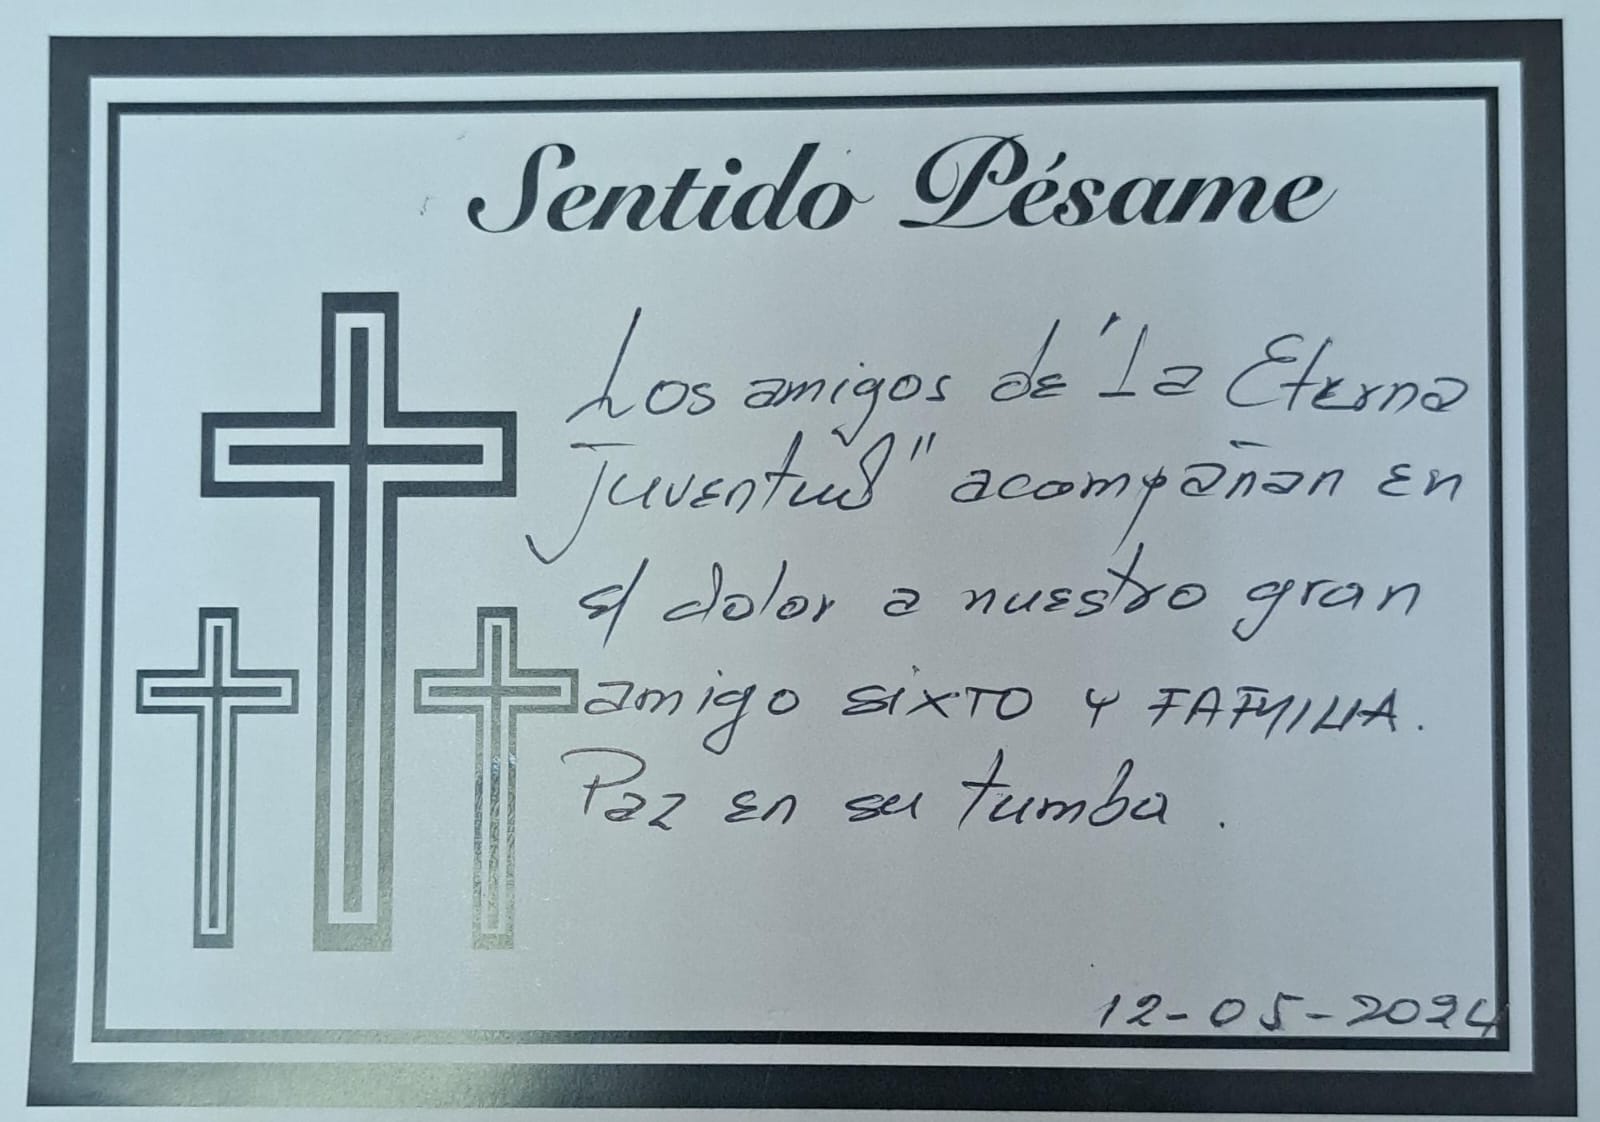 Sentido Pésame
Los amigos de "La Eterna
juventud" acompañan en
el dolor a nuestro gran
amigo SIXTO Y FAMILIA.
Paz en su tumba.
12-05-2024